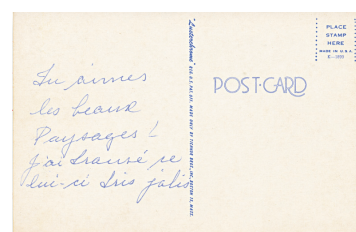 Tu aimes
les beaux
Paysages !
j'ai trouvé ce
lui-ci tris jolis
"Lusterchrome" REG. U.S. PAT. OFF. MADE ONLY BY TICHNOR BROS., INC., BOSTON 15, MASS.
POST-CARD
PLACE
STAMP
HERE
MADE IN U.S.A.